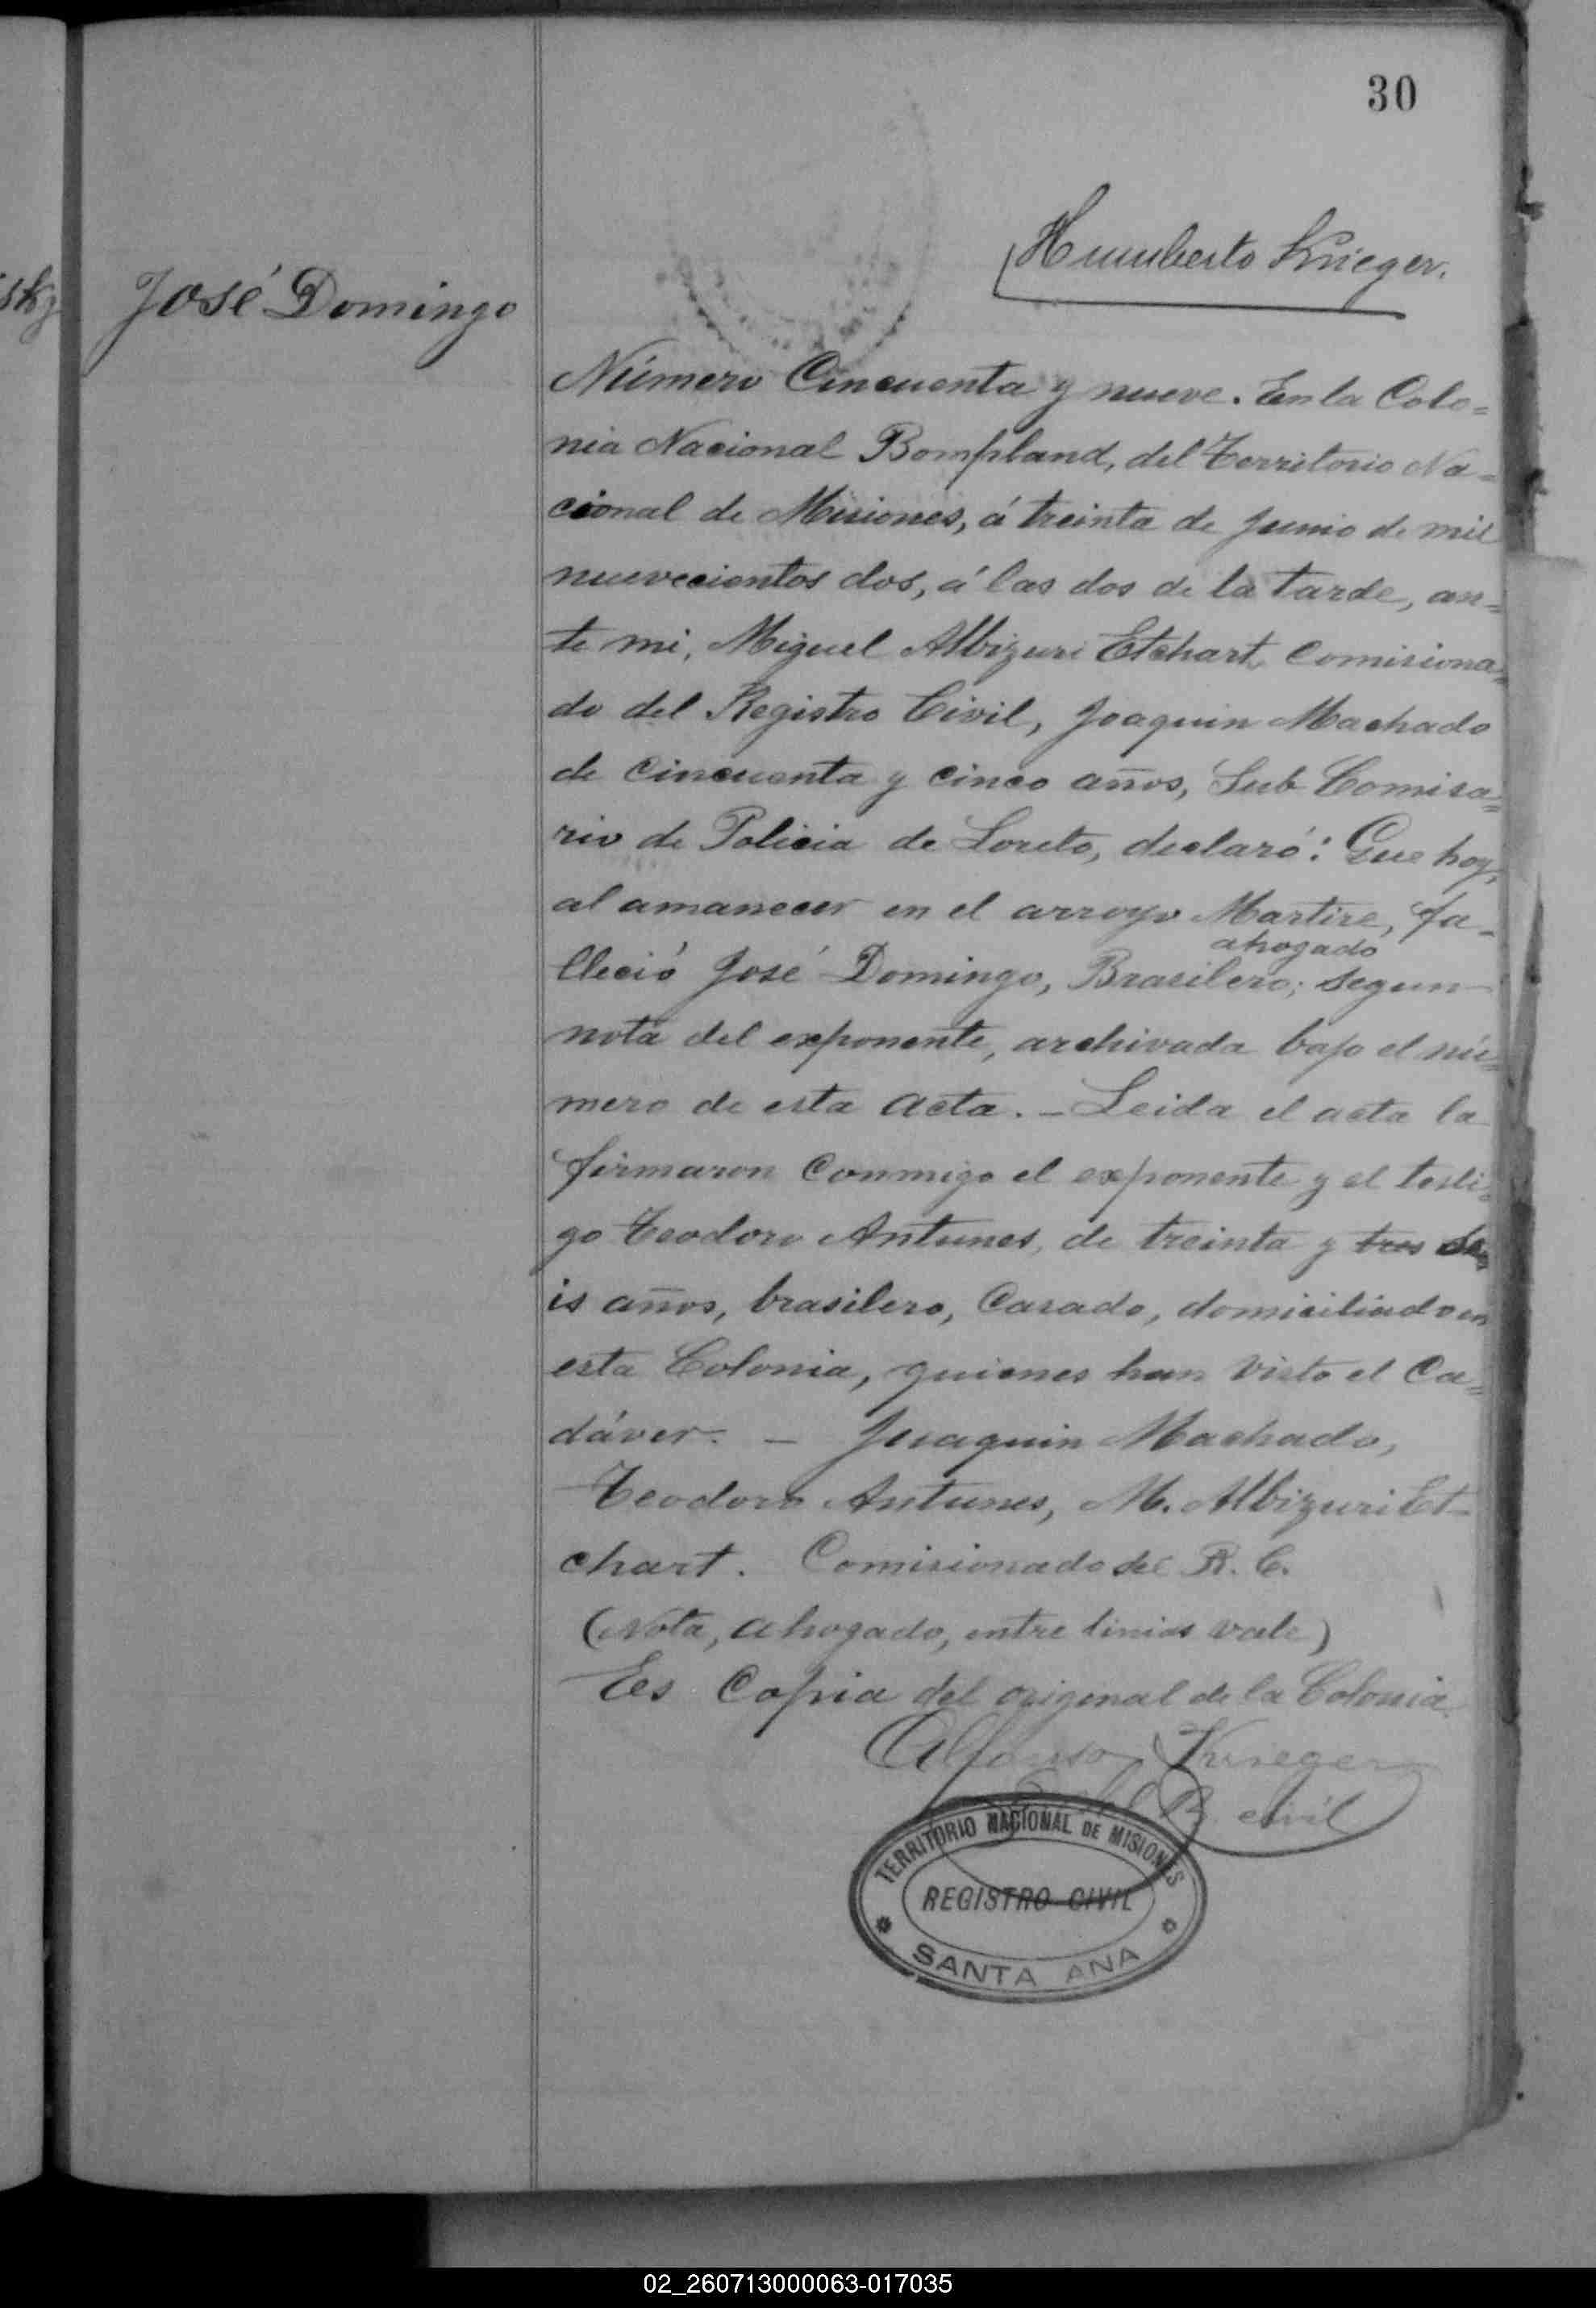 30
Humberto Krieger.
José Domingo
Número Cincuenta y nueve. En la Colo=
nia Nacional Bompland, del Territorio Na=
cional de Misiones, á treinta de Junio de mil
nuevecientos dos, á las dos de la tarde, an=
te mi, Miguel Albizuri Etchart, Comisiona=
do del Registro Civil, Joaquin Machado
de Cincuenta y cinco años, Sub Comisa=
rio de Policia de Loreto, declaró: Que hoy,
al amanecer en el arroyo Martire, fa-
ahogado
lleció José Domingo, Brasilero; segun
nota del exponente, archivada bajo el nú=
mero de esta acta. - Leida el acta la
firmaron Conmigo el exponente y el testi=
go Teodoro Antunes, de treinta y tres se
is años, brasilero, Casado, domiciliado en
esta Colonia, quienes han visto el Ca=
dáver. - Juaquin Machado,
Teodoro Antunes, M. Albizuri Et-
chart. Comisionado del R. C.
(Nota, ahogado, entre linias vale)
Es Copia del original de la Colonia.
Alfonso Krieger
R. civil
TERRITORIO NACIONAL DE MISIONES
REGISTRO CIVIL
SANTA ANA
02_260713000063-017035